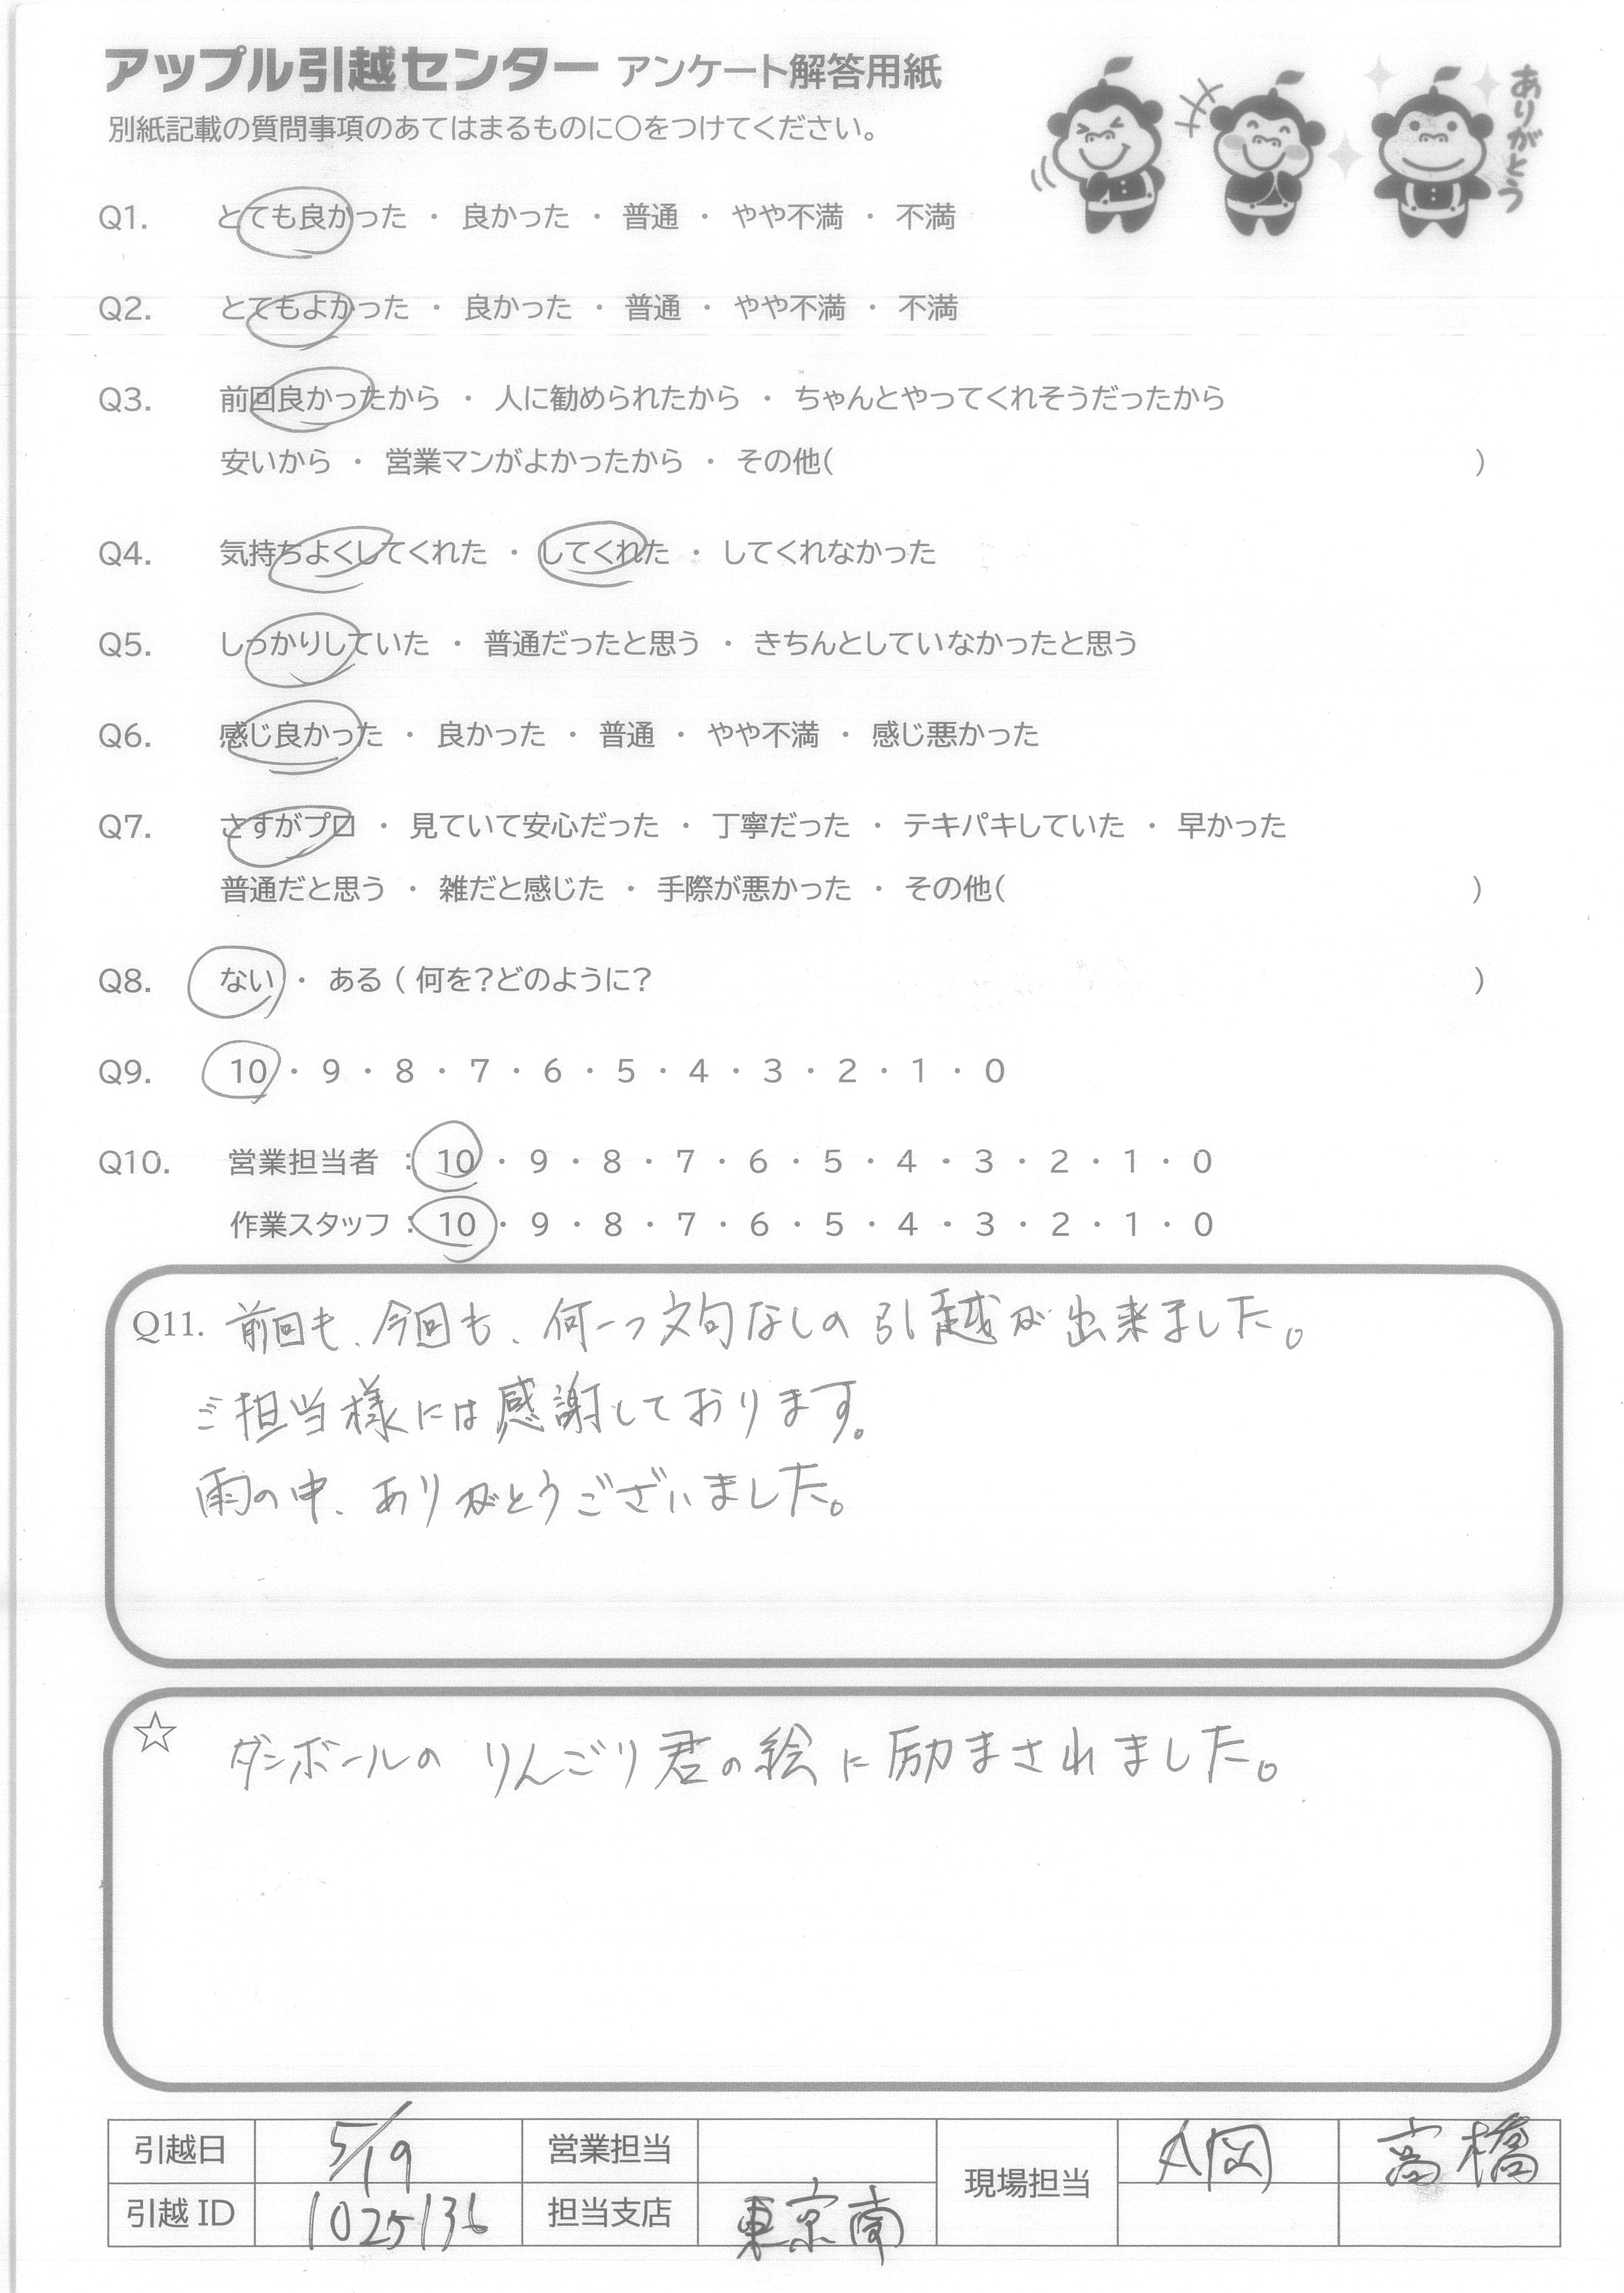 アップル引越センター アンケート解答用紙
別紙記載の質問事項のあてはまるものに○をつけてください。
ありがとう
Q1. とても良かった ・ 良かった ・ 普通 ・ やや不満 ・ 不満
Q2. とてもよかった ・ 良かった ・ 普通 ・ やや不満 ・ 不満
Q3. 前回良かったから ・ 人に勧められたから ・ ちゃんとやってくれそうだったから
安いから ・ 営業マンがよかったから ・ その他( )
Q4. 気持ちよくしてくれた ・ してくれた ・ してくれなかった
Q5. しっかりしていた ・ 普通だったと思う ・ きちんとしていなかったと思う
Q6. 感じ良かった ・ 良かった ・ 普通 ・ やや不満 ・ 感じ悪かった
Q7. さすがプロ ・ 見ていて安心だった ・ 丁寧だった ・ テキパキしていた ・ 早かった
普通だと思う ・ 雑だと感じた ・ 手際が悪かった ・ その他( )
Q8. ない ・ ある ( 何を?どのように? )
Q9. 10 ・ 9 ・ 8 ・ 7 ・ 6 ・ 5 ・ 4 ・ 3 ・ 2 ・ 1 ・ 0
Q10. 営業担当者 : 10 ・ 9 ・ 8 ・ 7 ・ 6 ・ 5 ・ 4 ・ 3 ・ 2 ・ 1 ・ 0
作業スタッフ : 10 ・ 9 ・ 8 ・ 7 ・ 6 ・ 5 ・ 4 ・ 3 ・ 2 ・ 1 ・ 0
Q11. 前回も、今回も、何一つ文句なしの引越が出来ました。
ご担当様には感謝しております。
雨の中、ありがとうございました。
☆ ダンボールの りんごり君の絵に励まされました。
引越日 5/19 営業担当 現場担当 岡 高橋
引越ID 1025136 担当支店 東京南